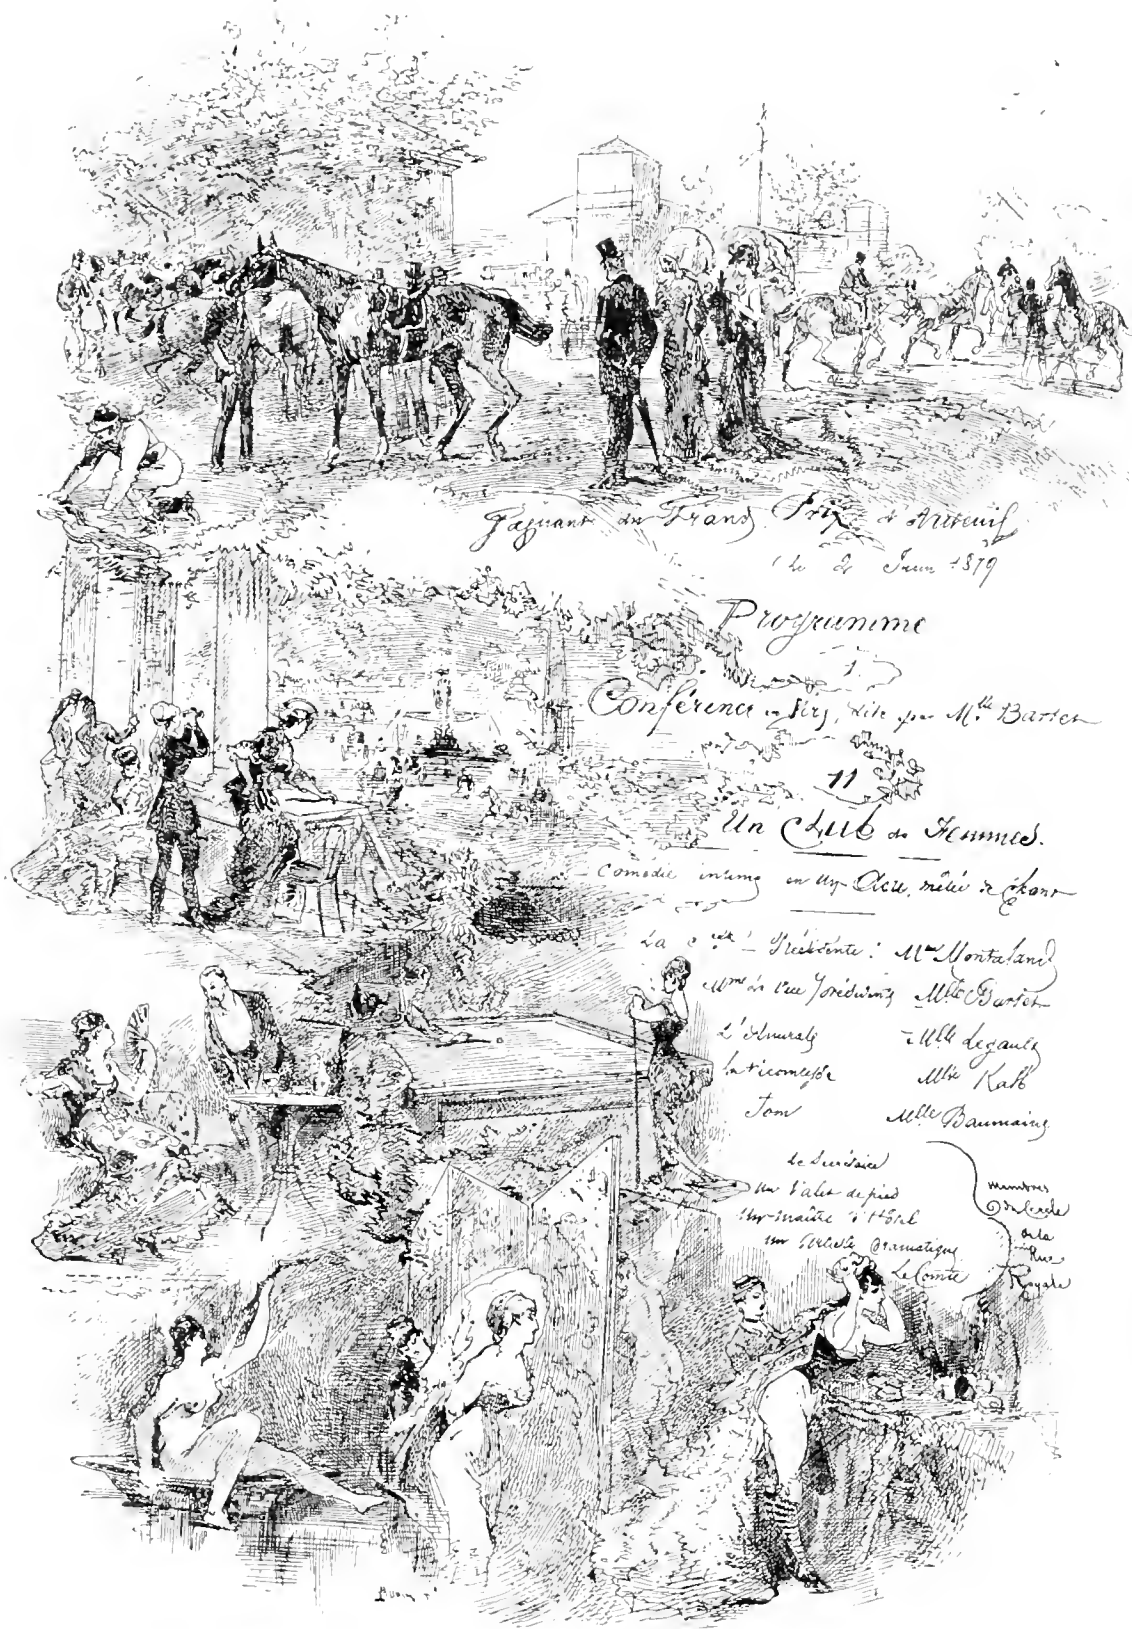 Gagnant du Grand Prix d'Auteuil
le 2 Juin 1879
Programme
1
Conférence en Vers, dite par Mlle Bartet
11
Un Club de Femmes.
Comédie intime en Un Acte, mêlée de Chant
La Présidente : Mme Montaland
Mme de Mlle Bartet
L'Amirale Mlle Legault
La Vicomtesse Mlle Kalb
Tom Mlle Baumaine
Le Secrétaire
Un Valet de pied
Un Maître d'Hôtel
Un Artiste Dramatique
Le Comte
membres
du Cercle
de la
Rue
Royale